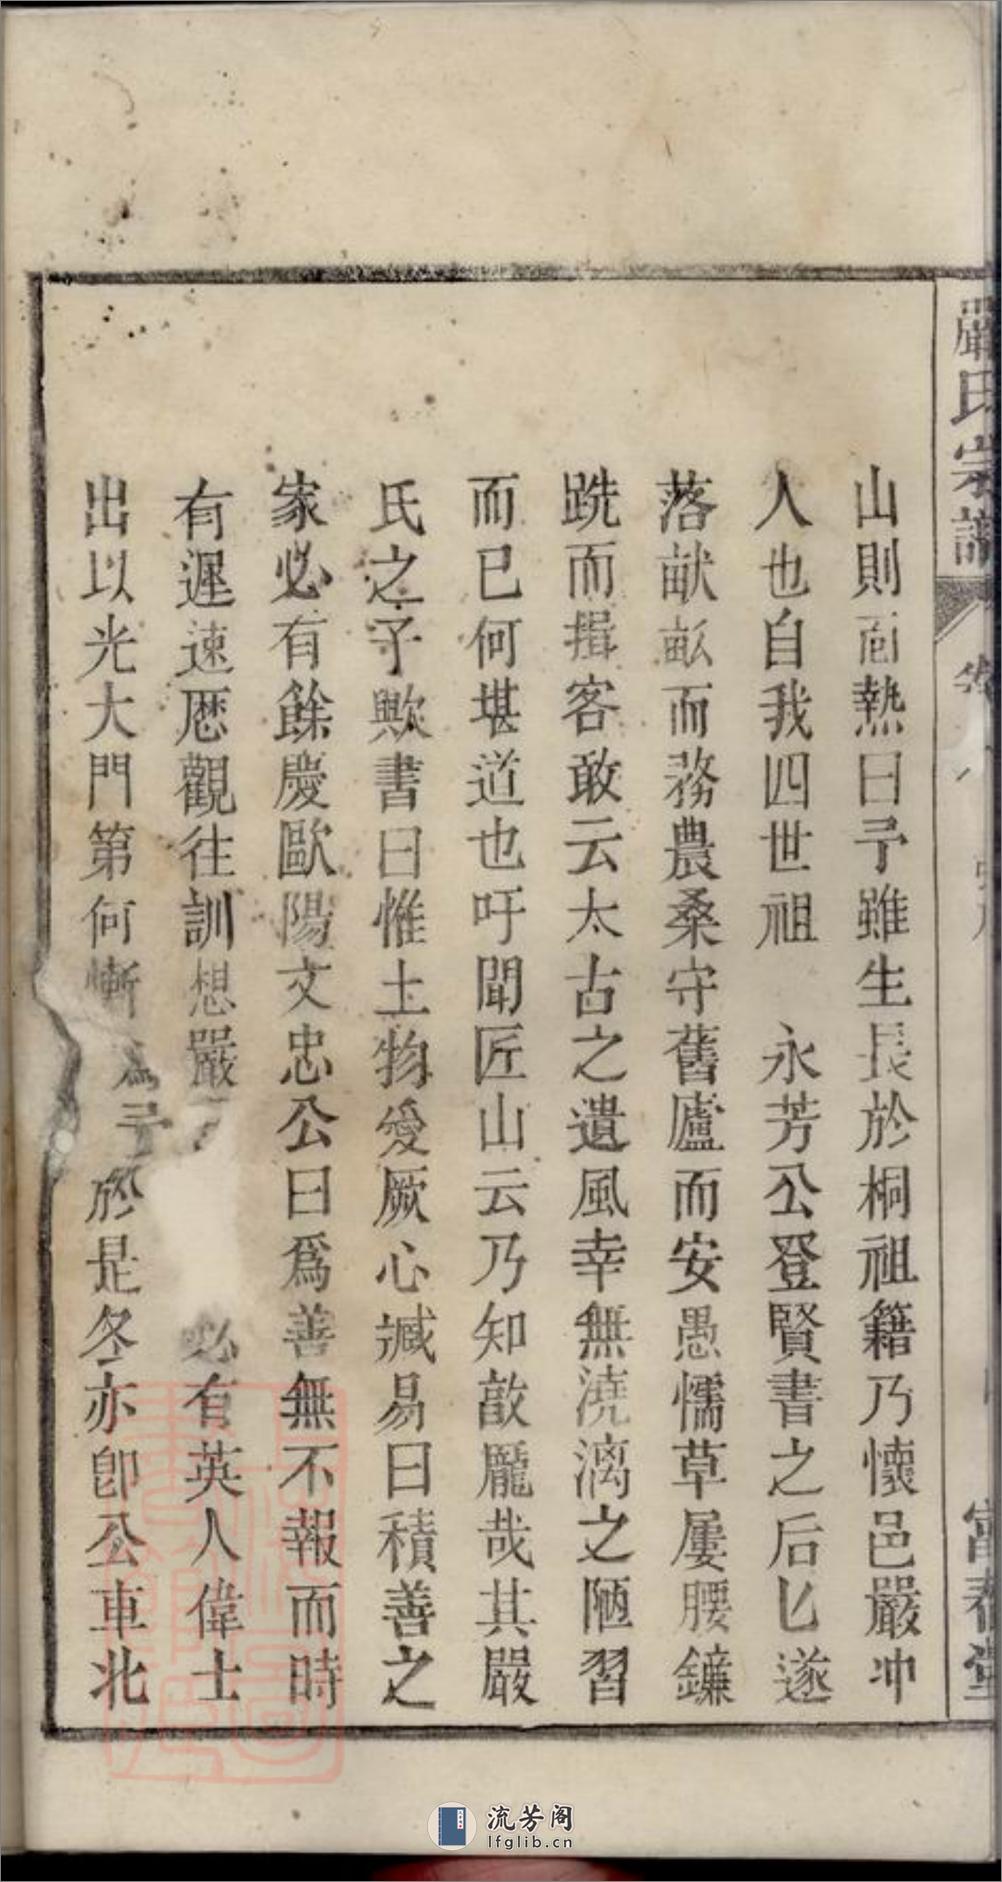 嚴氏宗譜
富春堂
山則面熱曰予雖生長於桐祖籍乃懷邑嚴冲
人也自我四世祖　永芳公登賢書之后匕遂
落献畝而務農桑守舊廬而安愚懦草屨腰鐮
跣而揖客敢云太古之遺風幸無澆漓之陋習
而已何堪道也吁聞匠山云乃知敨龐哉其嚴
氏之子歟書曰惟土物愛厥心臧易曰積善之
家必有餘慶歐陽文忠公曰爲善無不報而時
有遲速厯觀往訓想嚴必有英人偉士
出以光大門第何慚爲予於是冬亦卽公車北
流芳阁
lfglib.cn